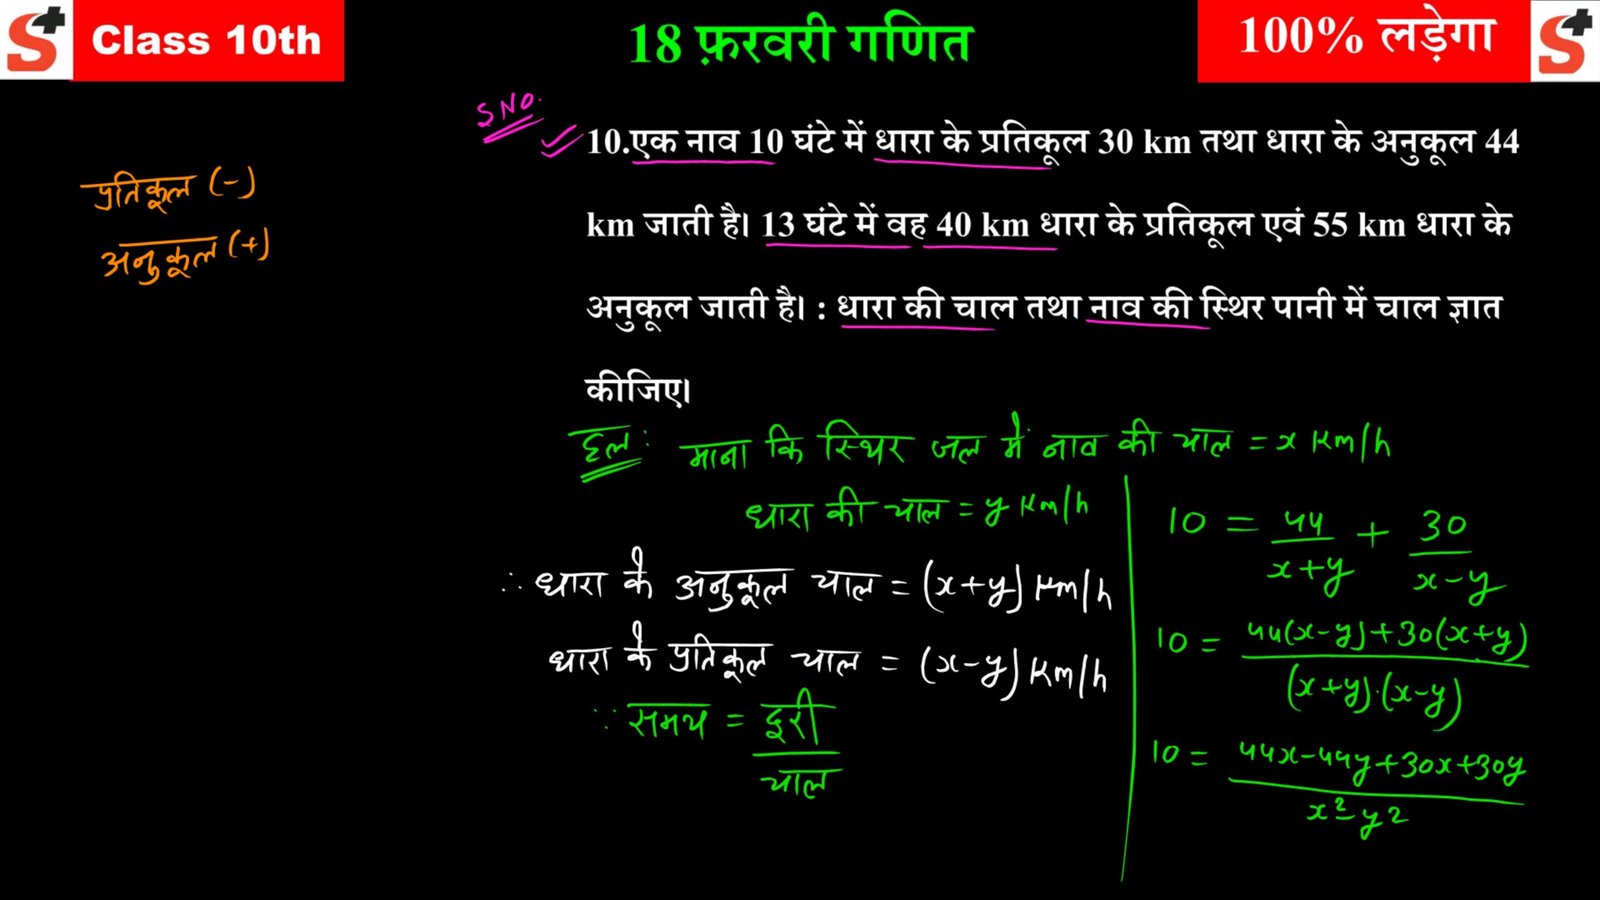 S+ Class 10th
18 फ़रवरी गणित
100% लड़ेगा S+
S NO.
10.एक नाव 10 घंटे में धारा के प्रतिकूल 30 km तथा धारा के अनुकूल 44
km जाती है। 13 घंटे में वह 40 km धारा के प्रतिकूल एवं 55 km धारा के
अनुकूल जाती है। : धारा की चाल तथा नाव की स्थिर पानी में चाल ज्ञात
कीजिए।
प्रतिकूल (-)
अनुकूल (+)
हल: माना कि स्थिर जल में नाव की चाल = x Km/h
धारा की चाल = y Km/h
∴ धारा के अनुकूल चाल = (x+y) Km/h
धारा के प्रतिकूल चाल = (x-y) Km/h
∵ समय = दूरी/चाल
10 = 44/x+y + 30/x-y
10 = 44(x-y)+30(x+y)/(x+y).(x-y)
10 = 44x-44y+30x+30y/x²-y²